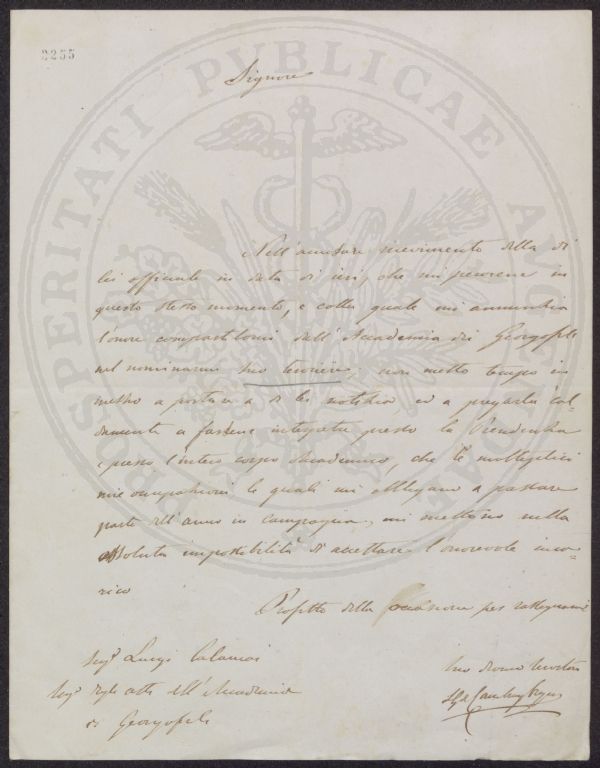 2255
PROSPERITATI PUBLICAE AUGENDAE
Signore
Nell'accusare ricevimento della di
lei officiale in data di ieri, che mi perviene in
questo stesso momento, e colla quale mi annunzia
l'onore compartitomi dall'Accademia dei Georgofili
nel nominarmi suo tesoriere, non metto tempo in
mezzo a portare a di lei notizia, ed a pregarla cal=
damente a farsene interpetre presso la Presidenza
e presso l'intero corpo Accademico, che le molteplici
mie occupazioni, le quali mi obbligano a passare
parte dell'anno in campagna, mi mettono nella
assoluta impossibilità di accettare l'onorevole inca=
rico
Profitto della occasione per rassegnarmi
Sigr. Luigi Calamai
Segr. degli atti dell'Accademia
dei Georgofili
Suo devmo servitore